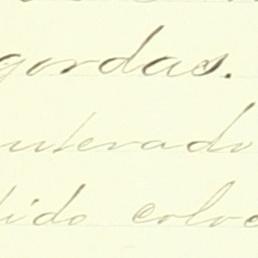 gordas.
enterado
tido coloc